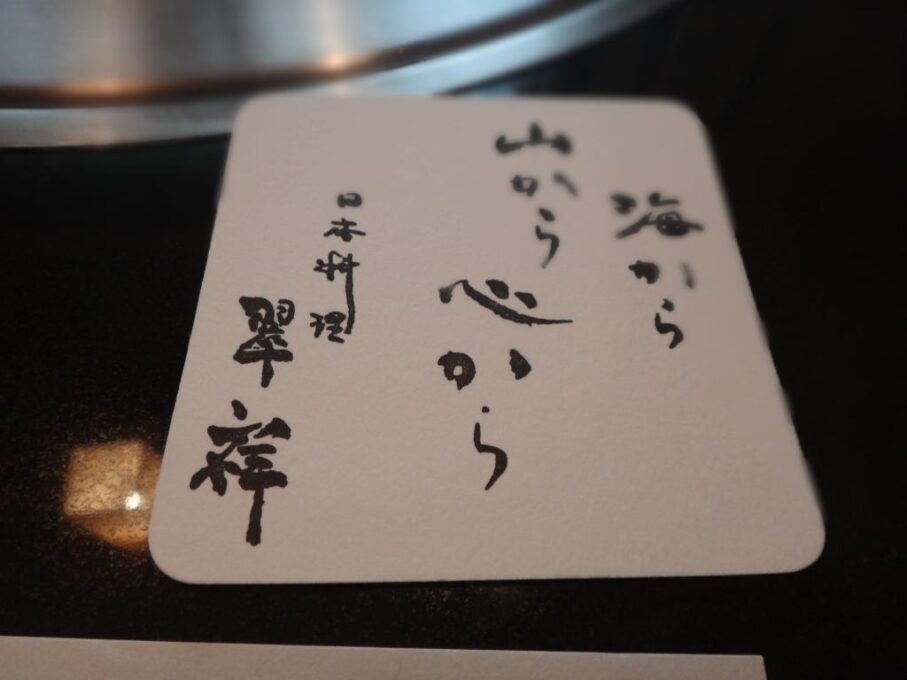 海から
山から
心から
日本料理
翠祥